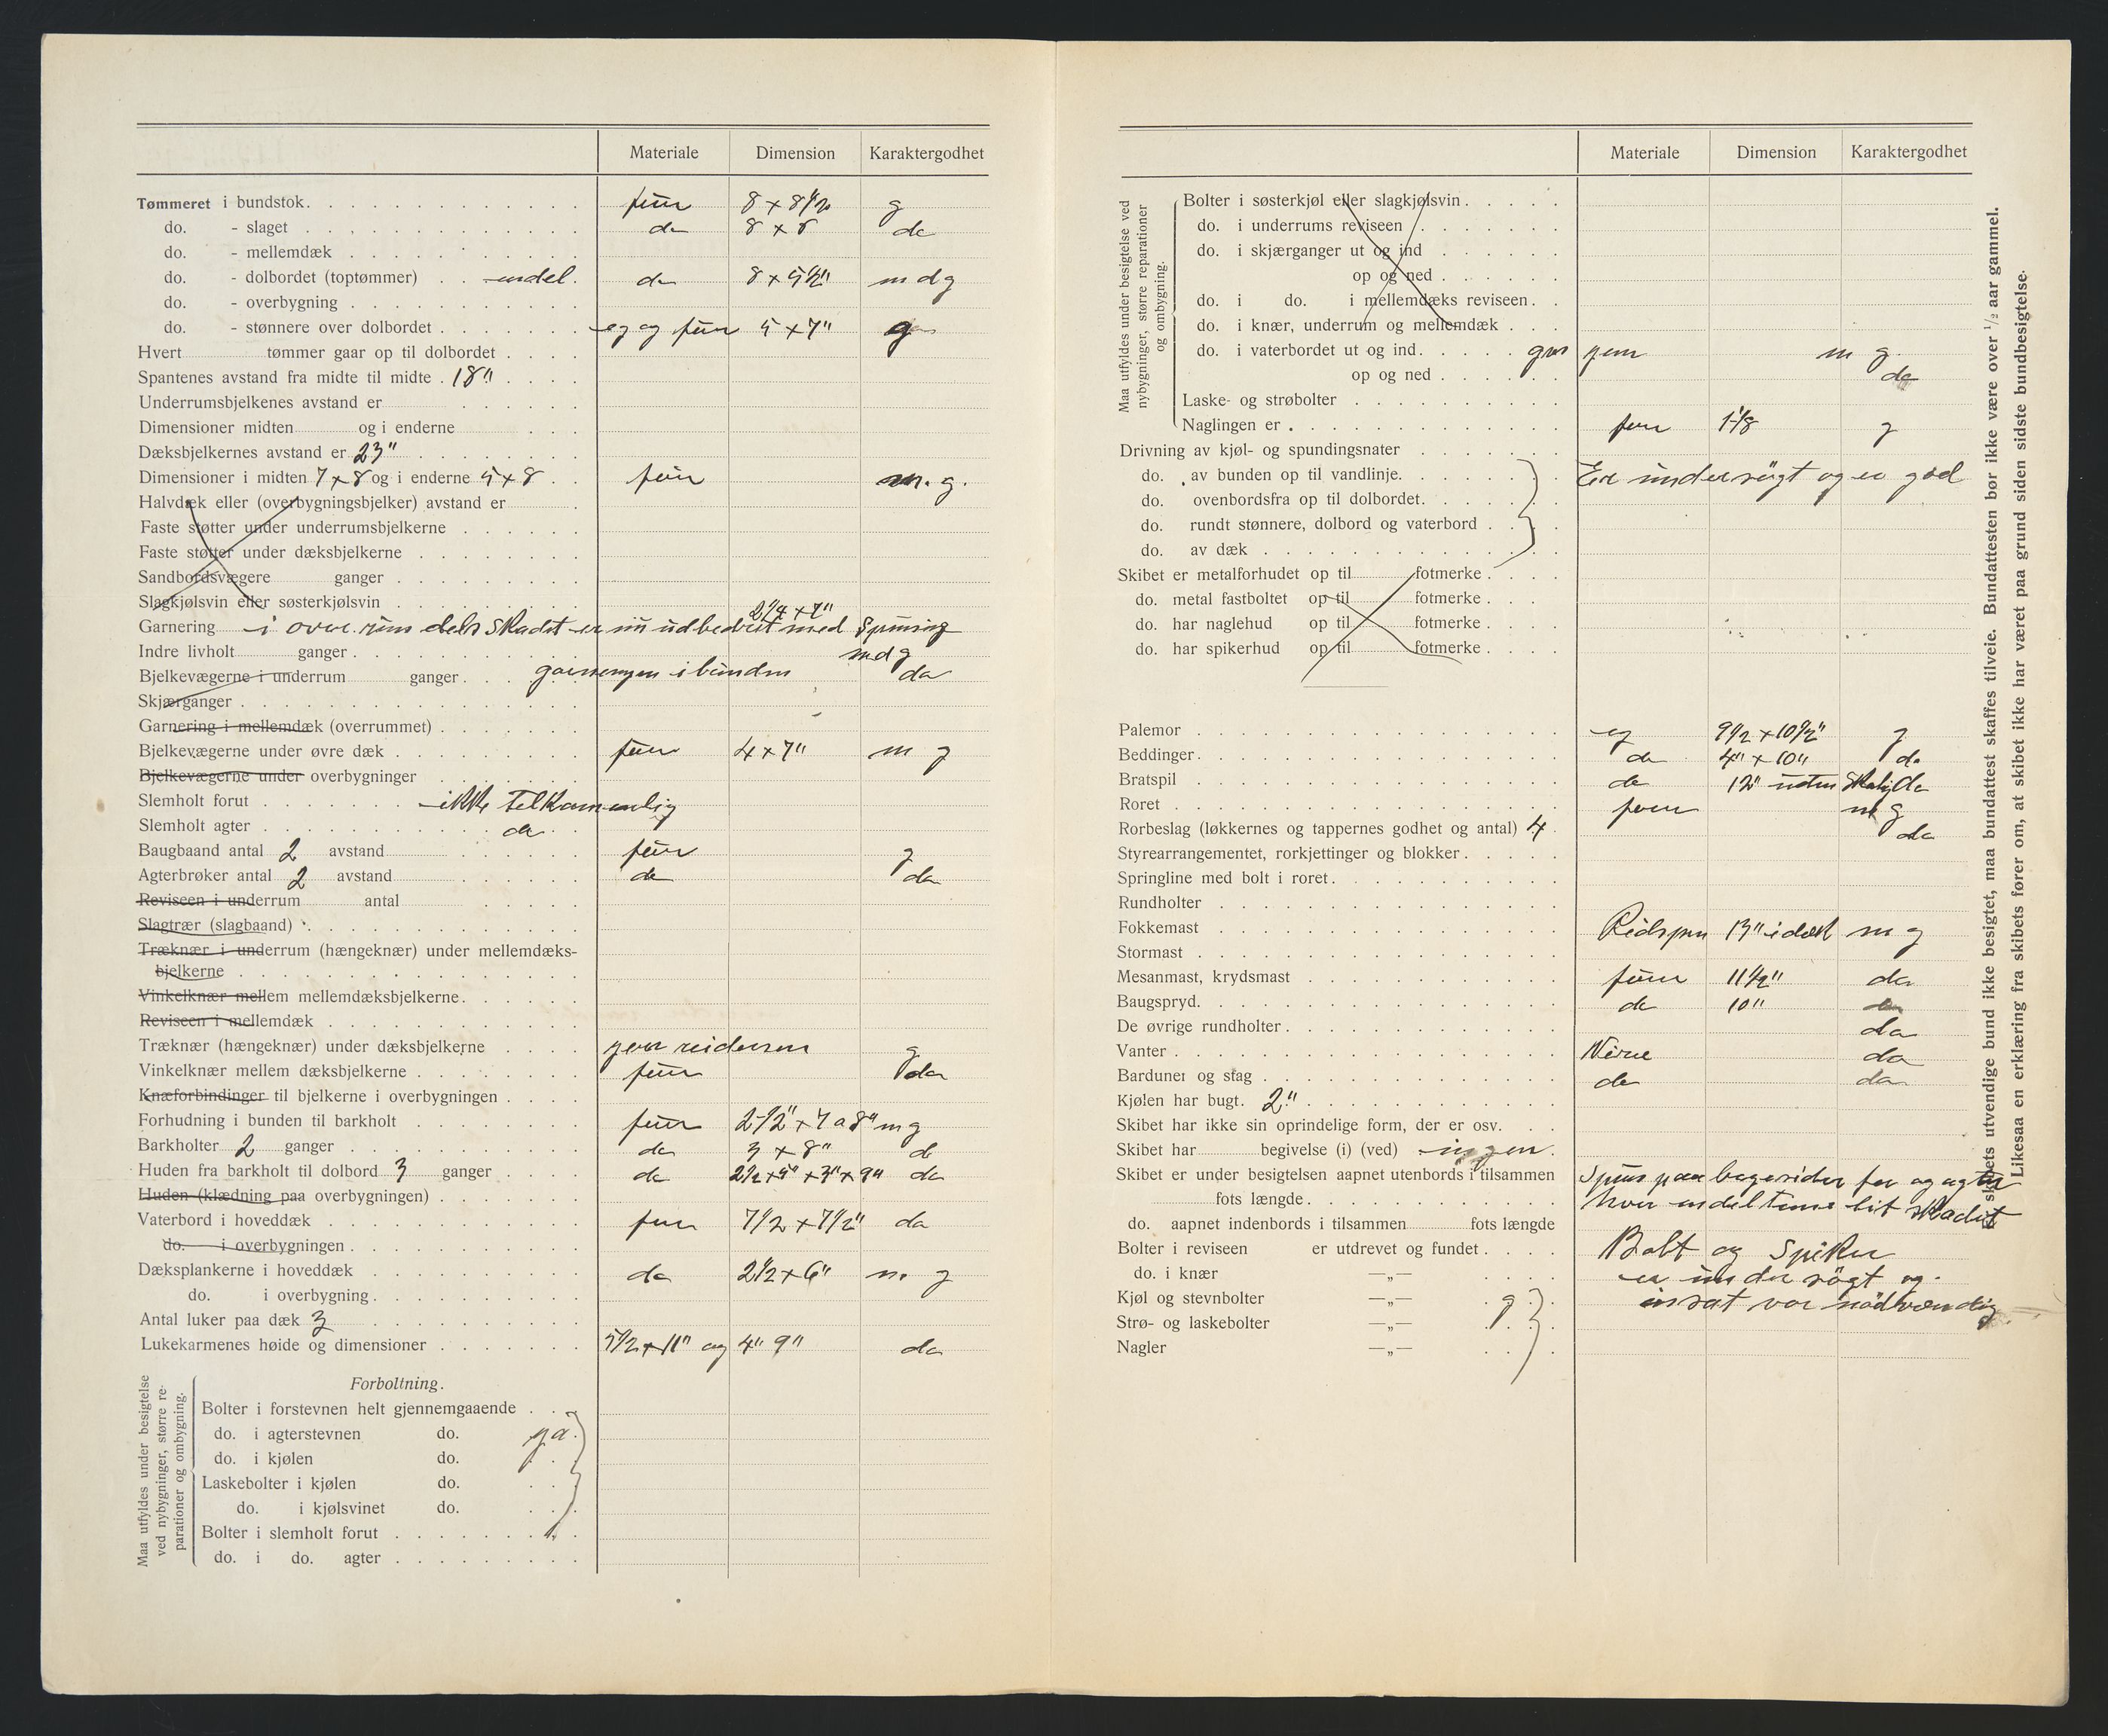 Materiale Dimension Karaktergodhet
Tømmeret i bundstok. furu 8 x 8 1/2 g
do. - slaget do 8 x 8 do
do. - mellemdæk
do. - dolbordet (toptømmer) endel. do 8 x 5 1/2" m d g
do. - overbygning
do. - stønnere over dolbordet eg og furu 5 x 7" g
Hvert tømmer gaar op til dolbordet
Spantenes avstand fra midte til midte. 18"
Underrumsbjelkenes avstand er
Dimensioner midten og i enderne
Dæksbjelkernes avstand er 23"
Dimensioner i midten 7 x 8 og i enderne 5 x 8 furu m. g.
Halvdæk eller (overbygningsbjelker) avstand er
Faste støtter under underrumsbjelkerne
Faste støtter under dæksbjelkerne
Sandbordsvægere ganger
Slagkjølsvin eller søsterkjølsvin
2 1/4 x 7"
Garnering i over rum dels skadet er nu udbedret med Spuning
Indre livholt ganger. m d g
Bjelkevægerne i underrum ganger. i bunden do
Skjærganger
Garnering i mellemdæk (overrummet)
Bjelkevægerne under øvre dæk furu 4 x 7" m g
Bjelkevægerne under overbygninger
Slemholt forut ikke
Slemholt agter do
Baugbaand antal 2 avstand furu g
Agterbrøker antal 2 avstand do do
Reviseen i underrum antal
Slagtrær (slagbaand)
Træknær i underrum (hængeknær) under mellemdæks-
bjelkerne
Vinkelknær mellem mellemdæksbjelkerne.
Reviseen i mellemdæk
Træknær (hængeknær) under dæksbjelkerne g
Vinkelknær mellem dæksbjelkerne furu do
Knæforbindinger til bjelkerne i overbygningen
Forhudning i bunden til barkholt furu 2 1/2" x 7 a 8" m g
Barkholter 2 ganger do 3 x 8" do
Huden fra barkholt til dolbord 3 ganger do 2 1/2 x 5" x 3" x 9" do
Huden (klædning paa overbygningen)
Vaterbord i hoveddæk furu 7 1/2 x 7 1/2" do
do. i overbygningen
Dæksplankerne i hoveddæk do 2 1/2 x 6" m. g
do. i overbygning.
Antal luker paa dæk 3
Lukekarmenes høide og dimensioner 5 1/2 x 11" og 4" 9" do
Maa utfyldes under besigtelse
ved nybygninger, større re-
parationer og ombygning.
Forboltning.
Bolter i forstevnen helt gjennemgaaende
do. i agterstevnen do. ja
do. i kjølen do.
Laskebolter i kjølen do.
do. i kjølsvinet do.
Bolter i slemholt forut
do. i do. agter
Materiale Dimension Karaktergodhet
Maa utfyldes under besigtelse ved
nybygninger, større reparationer
og ombygning.
Bolter i søsterkjøl eller slagkjølsvin
do. i underrums reviseen
do. i skjærganger ut og ind
op og ned
do. i do. i mellemdæks reviseen
do. i knær, underrum og mellemdæk
do. i vaterbordet ut og ind. m g
op og ned do
Laske- og strøbolter
Naglingen er 1 1/8 g
Drivning av kjøl- og spundingsnater
do. av bunden op til vandlinje. Er undersögt og er god
do. ovenbordsfra op til dolbordet.
do. rundt stønnere, dolbord og vaterbord
do. av dæk
Skibet er metalforhudet op til fotmerke
do. metal fastboltet op til fotmerke
do. har naglehud op til fotmerke
do. har spikerhud op til fotmerke
Palemor eg 9 1/2 x 10 1/2" g
Beddinger. do 4" x 10" do
Bratspil do 12" uden
Roret m g
Rorbeslag (løkkernes og tappernes godhet og antal) 4 do
Styrearrangementet, rorkjettinger og blokker
Springline med bolt i roret.
Rundholter
Fokkemast 13" i dæk m g
Stormast
Mesanmast, krydsmast furu 11 1/2" do
Baugspryd. do 10" do
De øvrige rundholter. do
Vanter Virue do
Barduner og stag do do
Kjølen har bugt. 2"
Skibet har ikke sin oprindelige form, der er osv.
Skibet har begivelse (i) (ved) ingen
Skibet er under besigtelsen aapnet utenbords i tilsammen
fots længde. Spuns paa begesider for og agter
do. aapnet indenbords i tilsammen fots længde hvor endel lit skadet
Bolter i reviseen er utdrevet og fundet Bolt og Spiker
do. i knær —„— er undersögt og
Kjøl og stevnbolter —„— g insat vor nödvendig
Strø- og laskebolter —„—
Nagler —„—
Er skibets utvendige bund ikke besigtet, maa bundattest skaffes tilveie. Bundattesten bør ikke være over 1/2 aar gammel.
Likesaa en erklæring fra skibets fører om, at skibet ikke har været paa grund siden sidste bundbesigtelse.